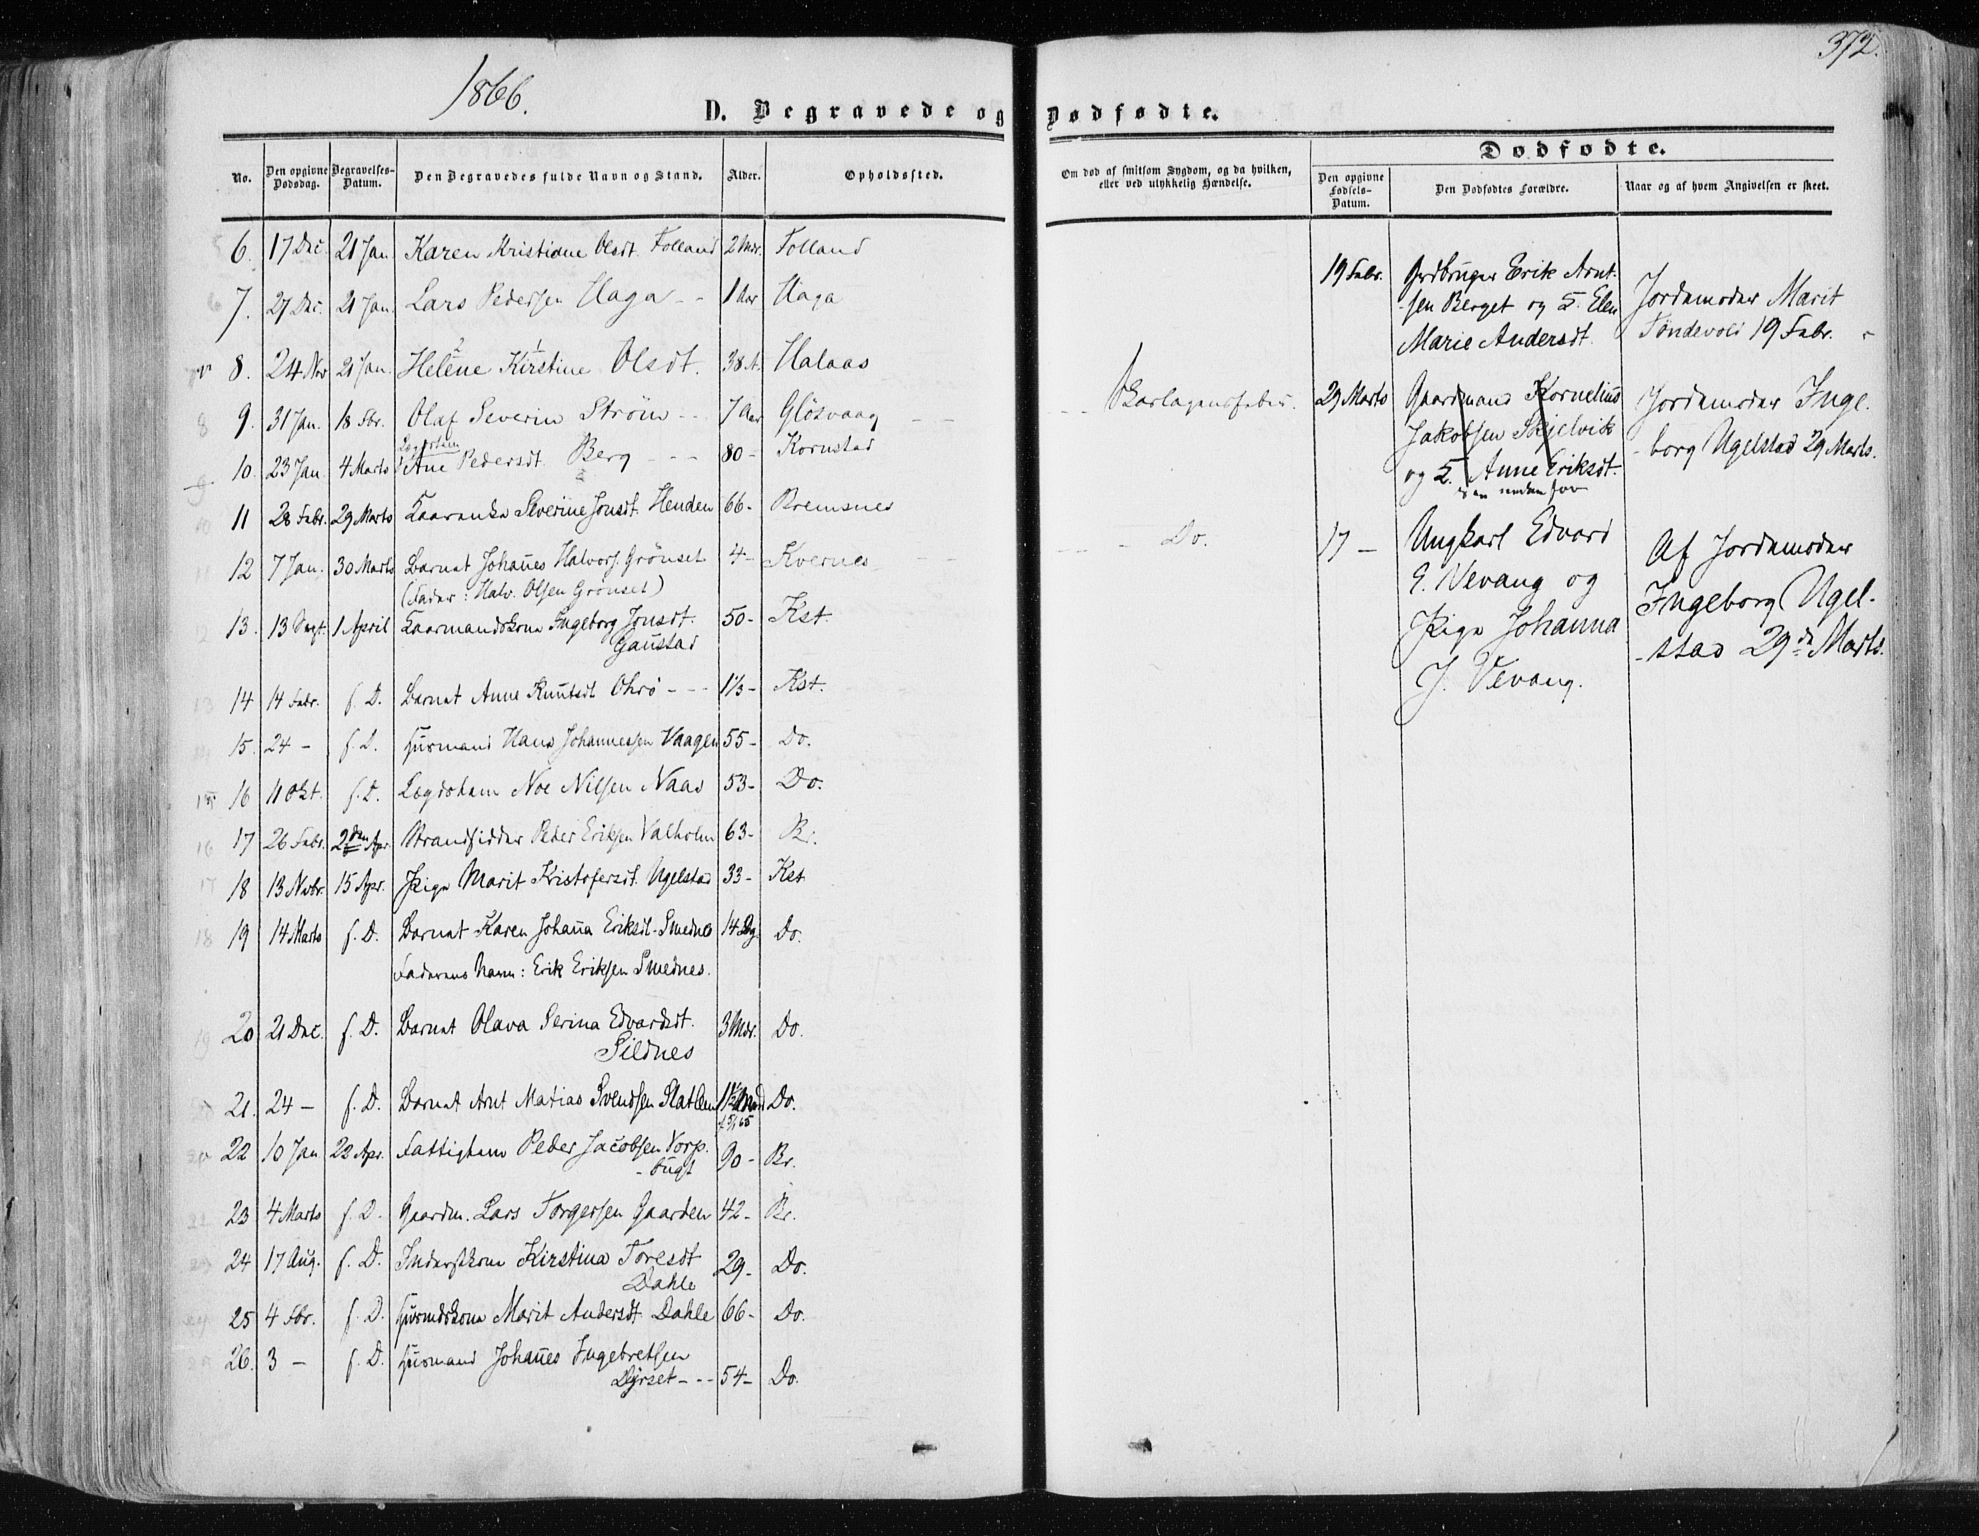 1866.
372.
D. Begravede og Dødfødte.
No.
Den opgivne Dødsdag.
Begravelses-Datum.
Den Begravedes fulde Navn og Stand.
Alder.
Opholdssted.
Om død af smitsom Sygdom, og da hvilken, eller ved ulykkelig Hændelse.
Dødfødte.
Den opgivne Fødsels-Datum.
Den Dødfødtes Forældre.
Naar og af hvem Angivelsen er skeet.
6. 17 Dec. 21 Jan. Karen Kristiane Olsdt. Folland 2 Mdr. Folland
7. 27 Dec. 21 Jan. Lars Pedersen Haga -- 1 Aar Haga
8. 24 Nov 21 Jan. Helene Kirstine Olsdt. 38 A. Halaas
9. 31 Jan. 18 Fbr. Olaf Severin Strøm -- 7 Aar Gløsvaag
-- Skarlagensfeber.
10. 23 Jan. 4 Marts Ane Pedersdt. Berg --- 80 - Kornstad
11 28 Febr. 29 Marts Severine Jonsdt. Henden 66 - Bremsnes
12 7 Jan. 30 Marts Barnet Johañes Halvors. Grönset 4 - Kvernes
--- Do.
(Fader: Halv. Olsen Grönset)
13. 13 1 April Gaarmandskone Ingeborg Jonsdt. 50 - Kst.
Gaustad
14 14 Febr. f. D. Barnet Anne Knutsdt Ohrö --- 1⅓ - Kst.
15. 24 - f. D. Husmand Hans Johannessen Vaagen 55 - Do.
16 11 Okt. f. D. Lægdslem Noe Nilsen Naas 53 - Do.
17 26 Febr. 2den Apr. Strandsidder Peder Eriksen Valholm 63 - Br.
18 13 Novbr. 15 Apr. Pige Marit Kristofersdt. Ugelstad 33 - Kst
19 14 Marts f. D. Barnet Karen Johaña Eriksdt. Smednes 14 Dg. Do.
Faderens Navn: Erik Eriksen Smednes.
20 21 Dec. f. D. Barnet Olava Serina Edvardsdt. 3 Mdr. Do.
Sildnes
21. 24 - f. D. Barnet Arnt Matias Svendsen Do.
22 10 Jan 22 Apr. Fattiglem Peder Jacobsen Vorp- 90 - Br.
- bugt
23 4 Marts f. D. Gaardm. Lars Torgersen Gaarden 42 - Br.
24 17 Aug. f. D. Inderstkone Kirstina Toresdt 29 - Do.
Dahle
25 4 Fbr. f. D. Husmdskone Marit Andersdt. Dahle 66 - Do.
26. 3 - f. D. Husmand Johañes Ingebretsen
Dyrset --- 54 - Do.
19 Febr. Jordbruger Erik Arnt-
sen Berget og H. Elen
Marie Andersdt.
Jordemoder Marit
Töndevold 19 Febr.
29 Marts Gaardmand Kornelius
Jakobsen Skjelvik
og H. Anne Eriksdt.
nedenfor
Jordemoder Inge-
borg Ugelstad 29 Marts.
17 - Ungkarl Edvard
E. Vevang og
Pige Johanna
J. Vevang.
Af Jordemoder
Ingeborg Ugel-
-stad 29de Marts.